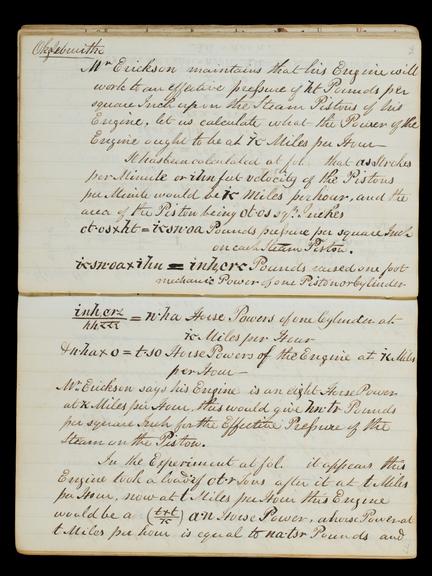 Mr. Erickson maintains that his Engine will
work to an effective pressure of ht Pounds per
square Inch upon the Steam Pistons of his
Engine, let us calculate what the Power of the
Engine ought to be at k Miles per Hour
It has been calculated at fol. that as Strokes
per Minute or ihn feet velocity of the Pistons
per Minute would be k Miles per hour, and the
area of the Piston being ot.os sqr. Inches
ot.os x ht = Pounds pressure per square Inch
on each Steam Piston.
x ihn = Pounds raised one foot
mechanic Power of one Piston or Cylinder
= n.ha Horse Powers of one Cylinder at
k Miles per Hour
& n.ha x o = t.so Horse Powers of the Engine at k Miles
per Hour
Mr. Erickson says his Engine is an eight Horse Power
at k Miles per Hour, this would give hn.tr Pounds
per square Inch for the Effective Pressure of the
Steam on the Piston.
In the Experiment at fol. it appears this
Engine took a load of ot.r Tons after it at t Miles
per Hour, now at t Miles per Hour this Engine
would be a (t x t / k) a.n Horse Power, a horse Power at
t Miles per hour is equal to na.tsr Pounds and